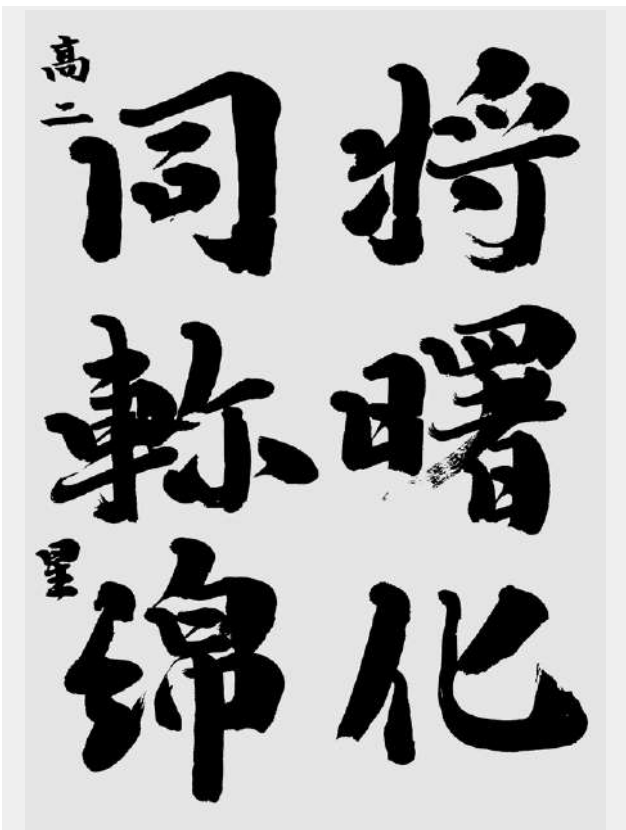 将曙化
同軫綿
高二 星